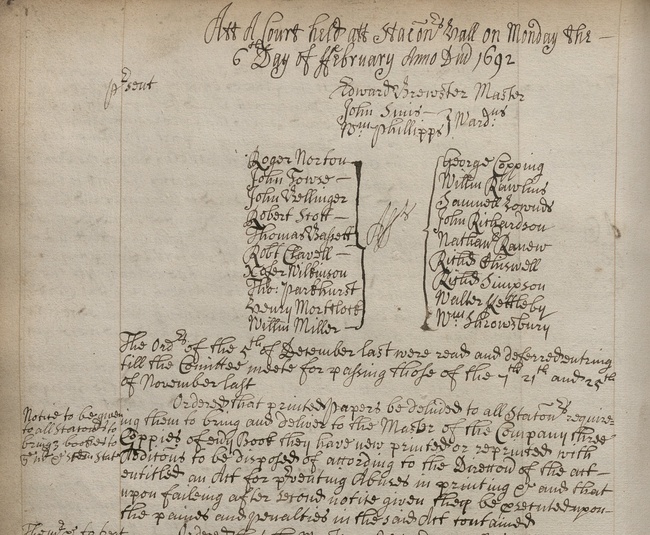 Att A Court held att Stacõn.rs Hall on Monday the
6th Day of ffebruary Anno Dñi 1692
p.rsent
Edward Brewster Master
John Sims
Wm Phillipps } Ward.ns
Roger Norton
John Towse
John Bellinger
Robert Scott
Thomas Bassett
Robt Clavell
Roger Wilkinson
Tho: Parkhurst
Henry Mortlock
Willm Miller
Ass.ts
George Copping
Willm Rawlins
Samuell Lownds
John Richardson
Nathan.l Ranew
Rich.d Chiswell
Rich.d Simpson
Walter Kettleby
Wm Shrowsbury
The Ord.rs of the 5th of December last were read and deferred entring
till the Comittee meete for passing those of the 7th 21th and 25th
of November last
Ordered that printed papers be deliv̄ed to all Stacon.rs requir
ing them to bring and deliver to the Master of the Company three
Coppies of ev̄y Book they have new printed or reprinted with
Addicons to be disposed of according to the direccon of the act
entitled an Act for p.rventing Abuses in printing &c and that
upon faileing after second notice given they be p̱secuted upon
the paines and penalties in the said Act contained
Notice to be given
to all Stacon.rs to
bring 3 books to
Ordered that the